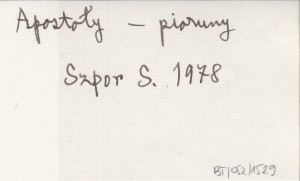 Apostoły – pioruny
Szpor S. 1978
BT/052/1529